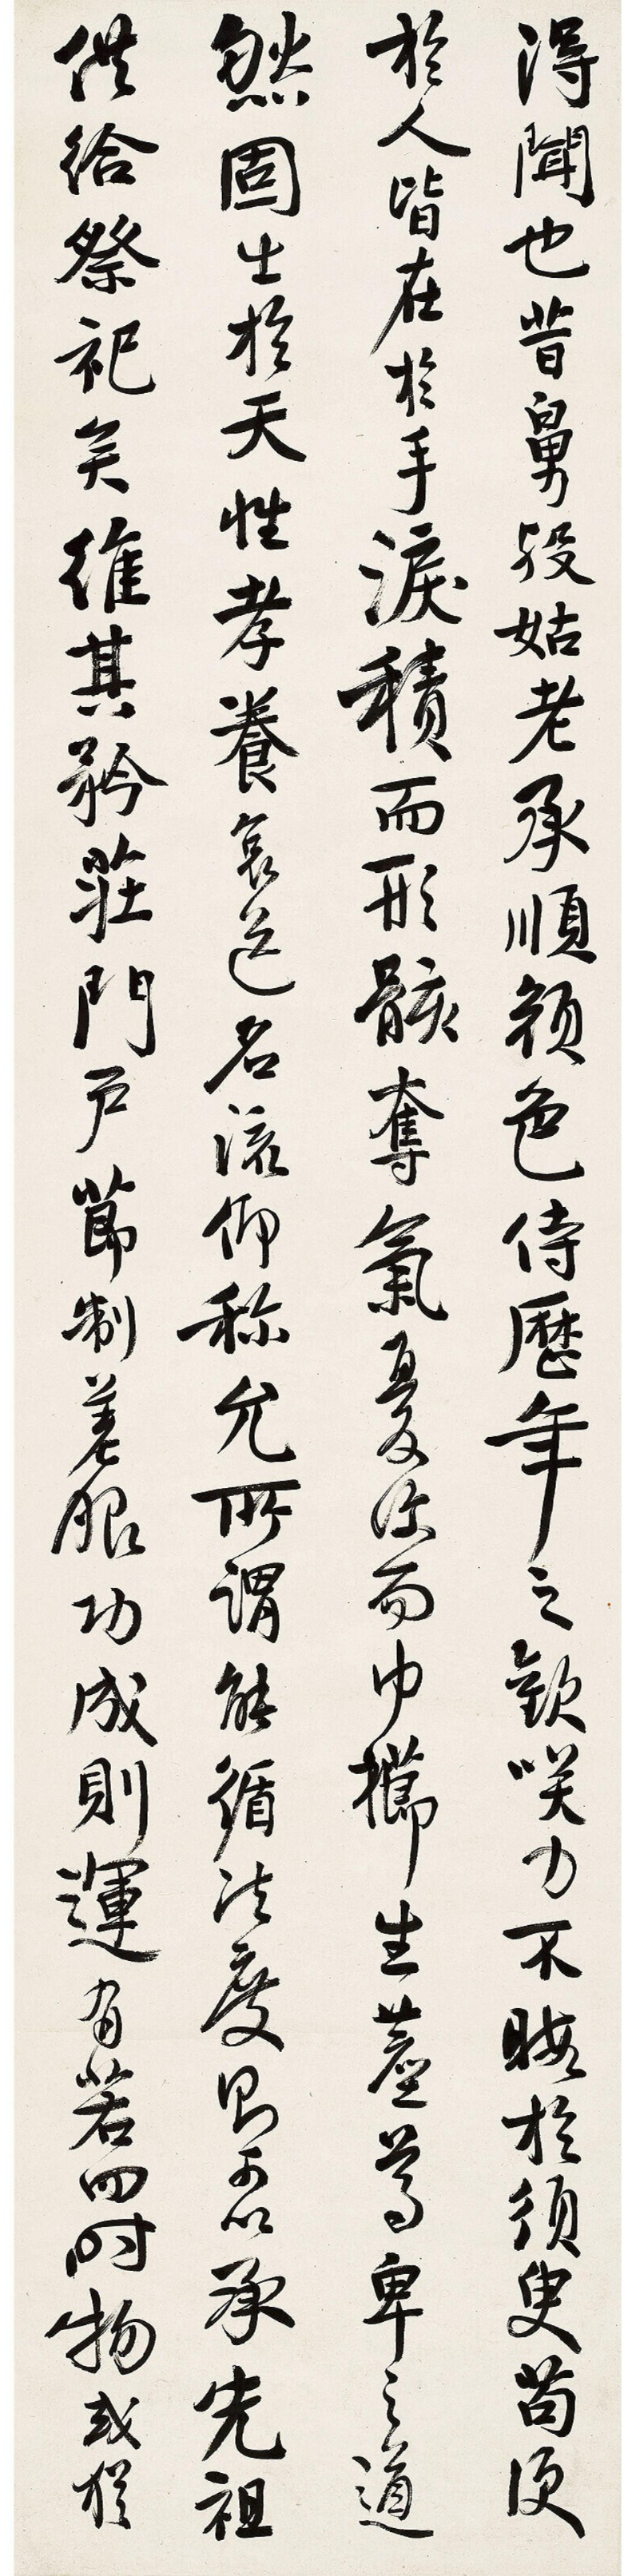 得聞也昔舅歿姑老承順顏色侍歷年之歡咲力不暇於須臾苟便
於人皆在於手淚積而形骸奪氣憂深而巾櫛生塵尊卑之道
然固出於天性孝養哀送名流仰称允所謂能循法度則可以承先祖
供給祭祀矣維其矜莊門戶節制差服功成則運有若四時物或猶